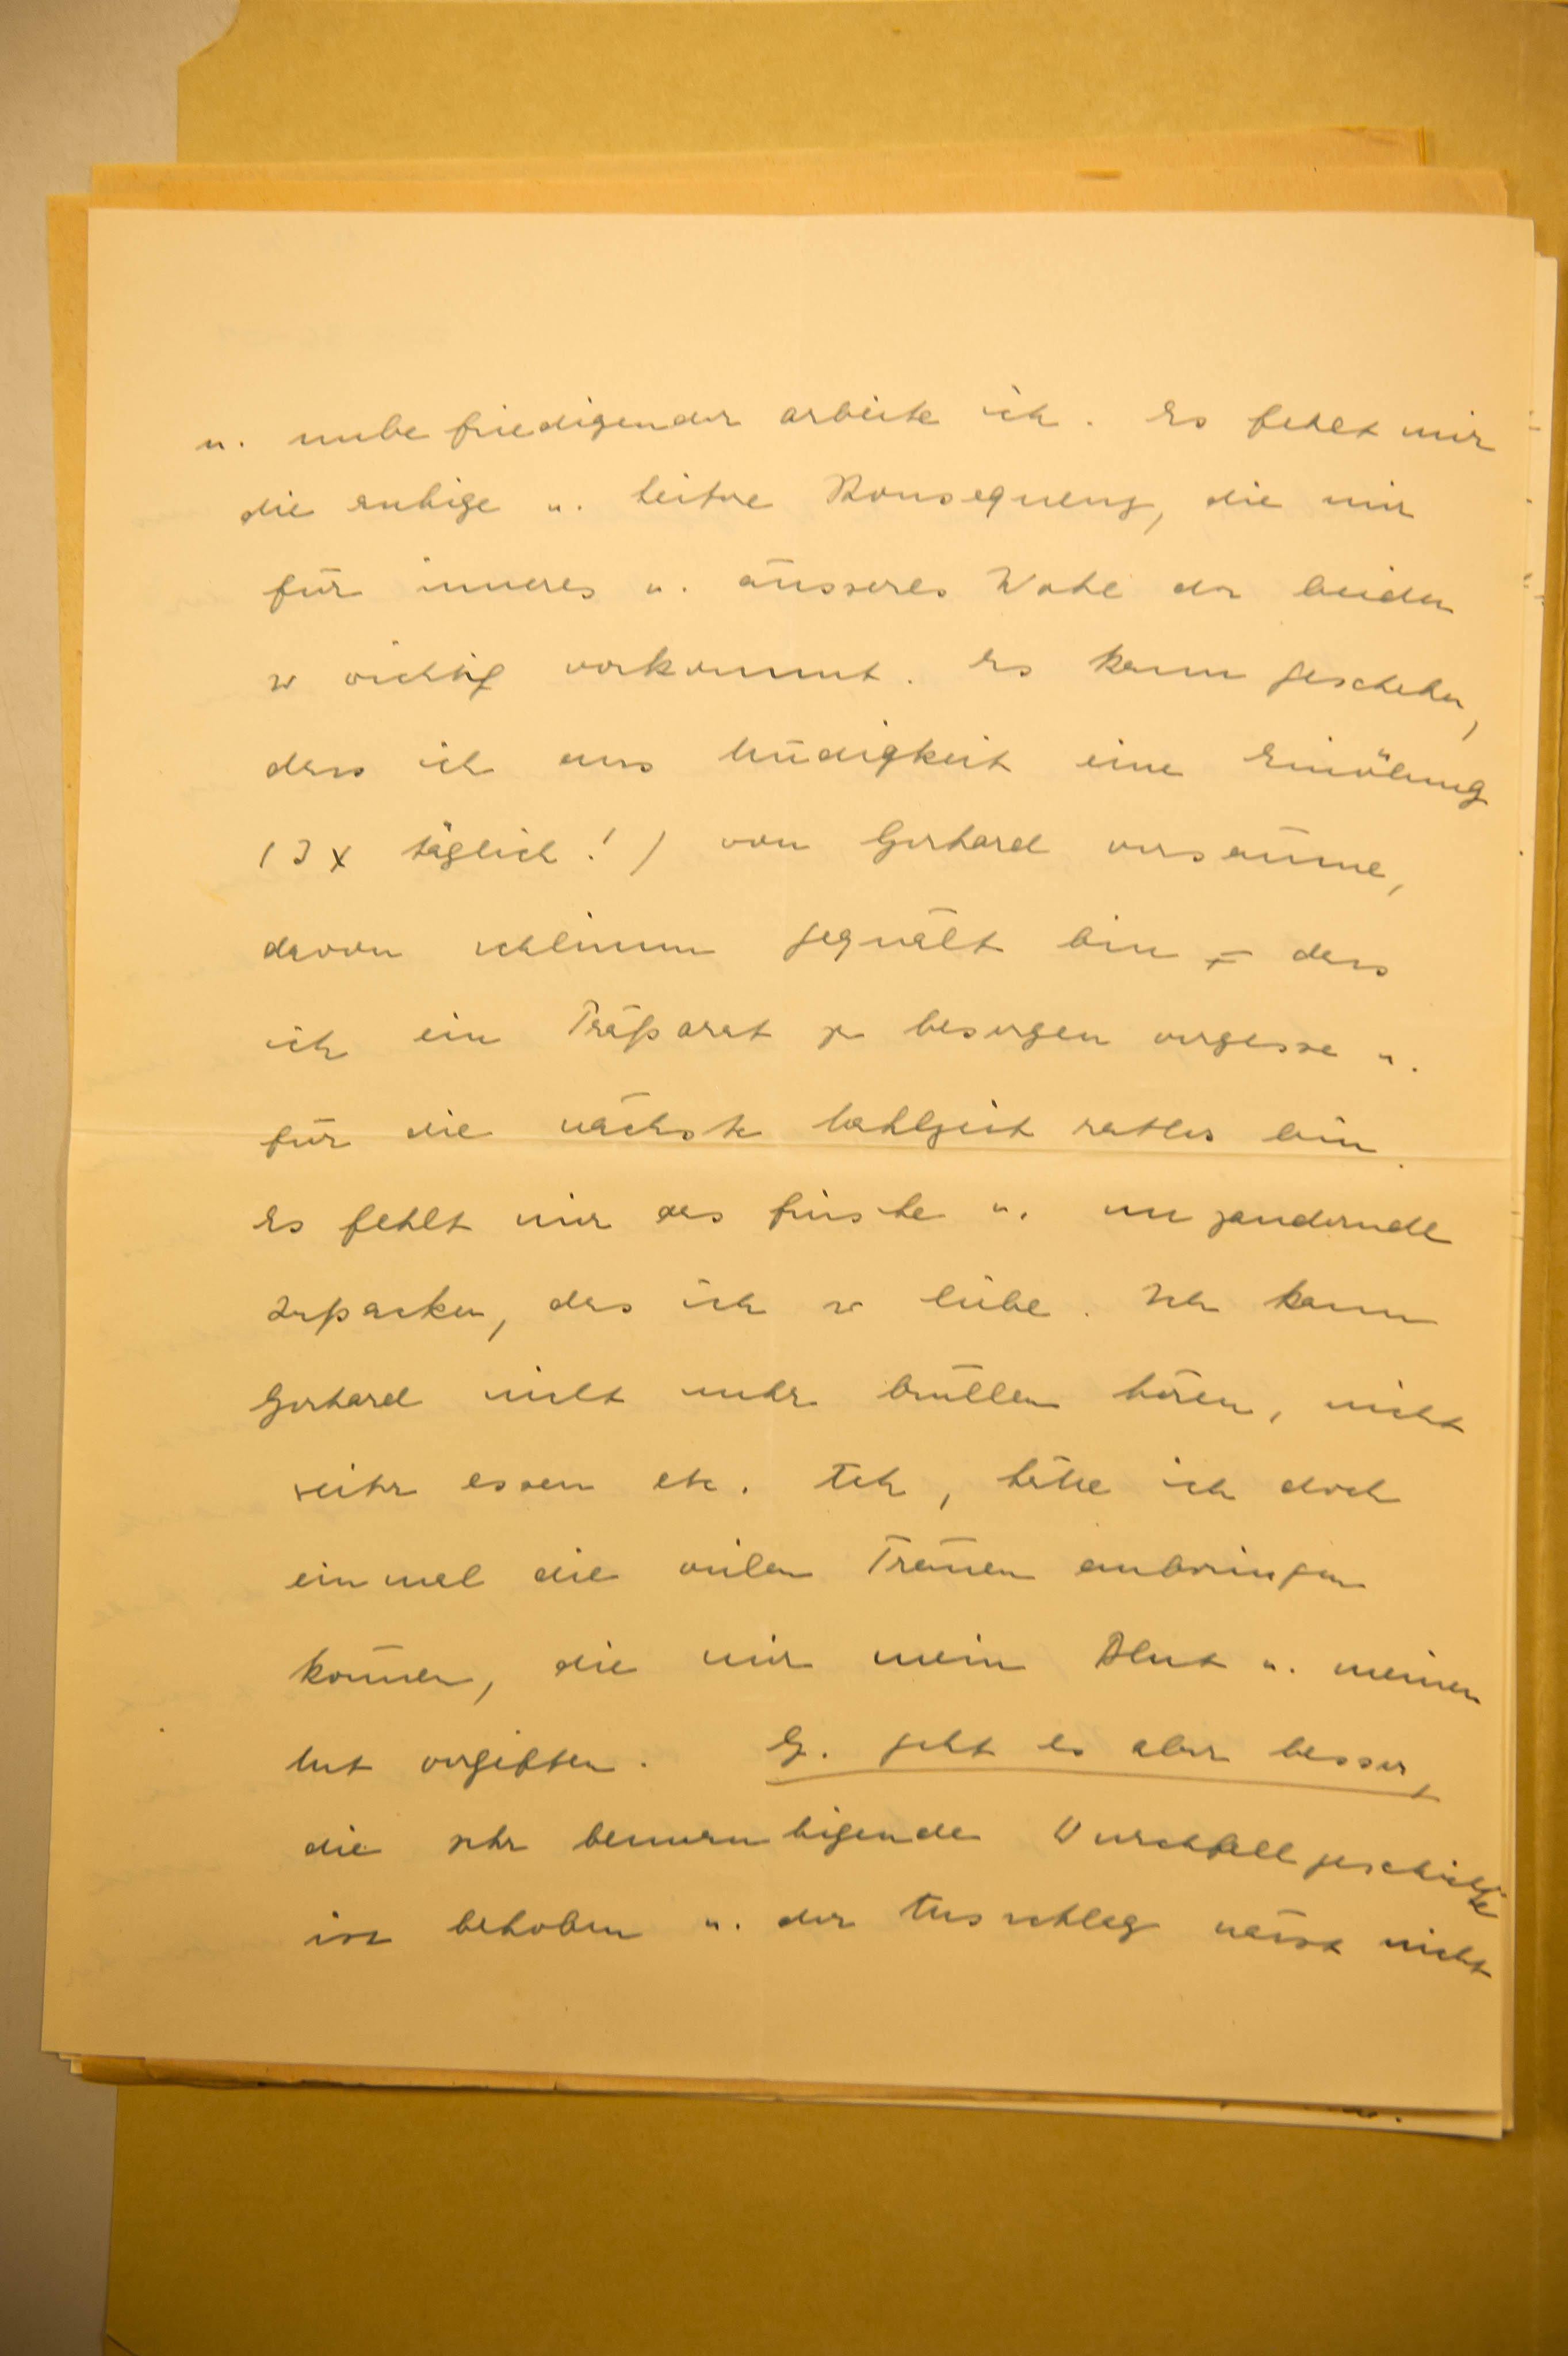 u. unbefriedigender arbeite ich. Es fehlt mir
die ruhige u. heitre Konsequenz, die mir
für inneres u. äusseres Wohl der beiden
so wichtig vorkommt. Es kann geschehen,
dass ich aus Müdigkeit eine Einölung
(3 x täglich!) von Gerhard versäume,
davon schlimm gequält bin – dass
ich ein Präparat zu besorgen vergesse u.
für die nächste Mahlzeit ratlos bin.
Es fehlt mir das frische u. unzaudernde
Zupacken, das ich so liebe. Ich kann
Gerhard nicht mehr brüllen hören, nicht
mehr essen etc. Ach, hätte ich doch
einmal die vielen Tränen anbringen
können, die mir mein Blut u. meinen
Mut vergiften. G. geht es aber besser,
die sehr beunruhigende Durchfallgeschichte
ist behoben u. der Ausschlag nässt nicht